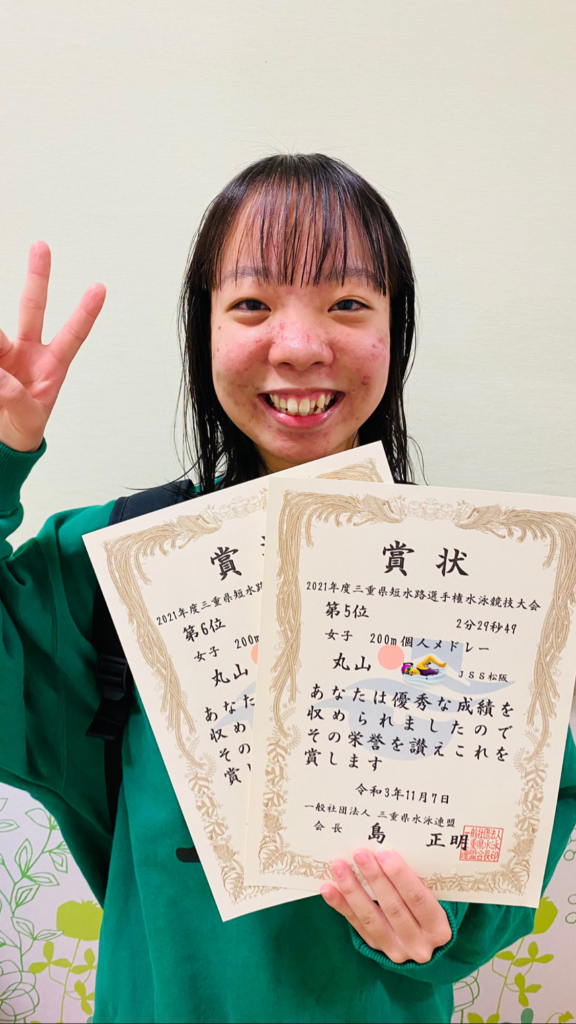 賞
2021年度三重県短水路
第6位
女子 200m
丸山
あなた
収め
その
賞し
賞状
2021年度三重県短水路選手権水泳競技大会
第5位 2分29秒49
女子 200m個人メドレー
丸山 JSS松阪
あなたは優秀な成績を
収められましたので
その栄誉を讃えこれを
賞します
令和3年11月7日
一般社団法人 三重県水泳連盟
会長 島 正明